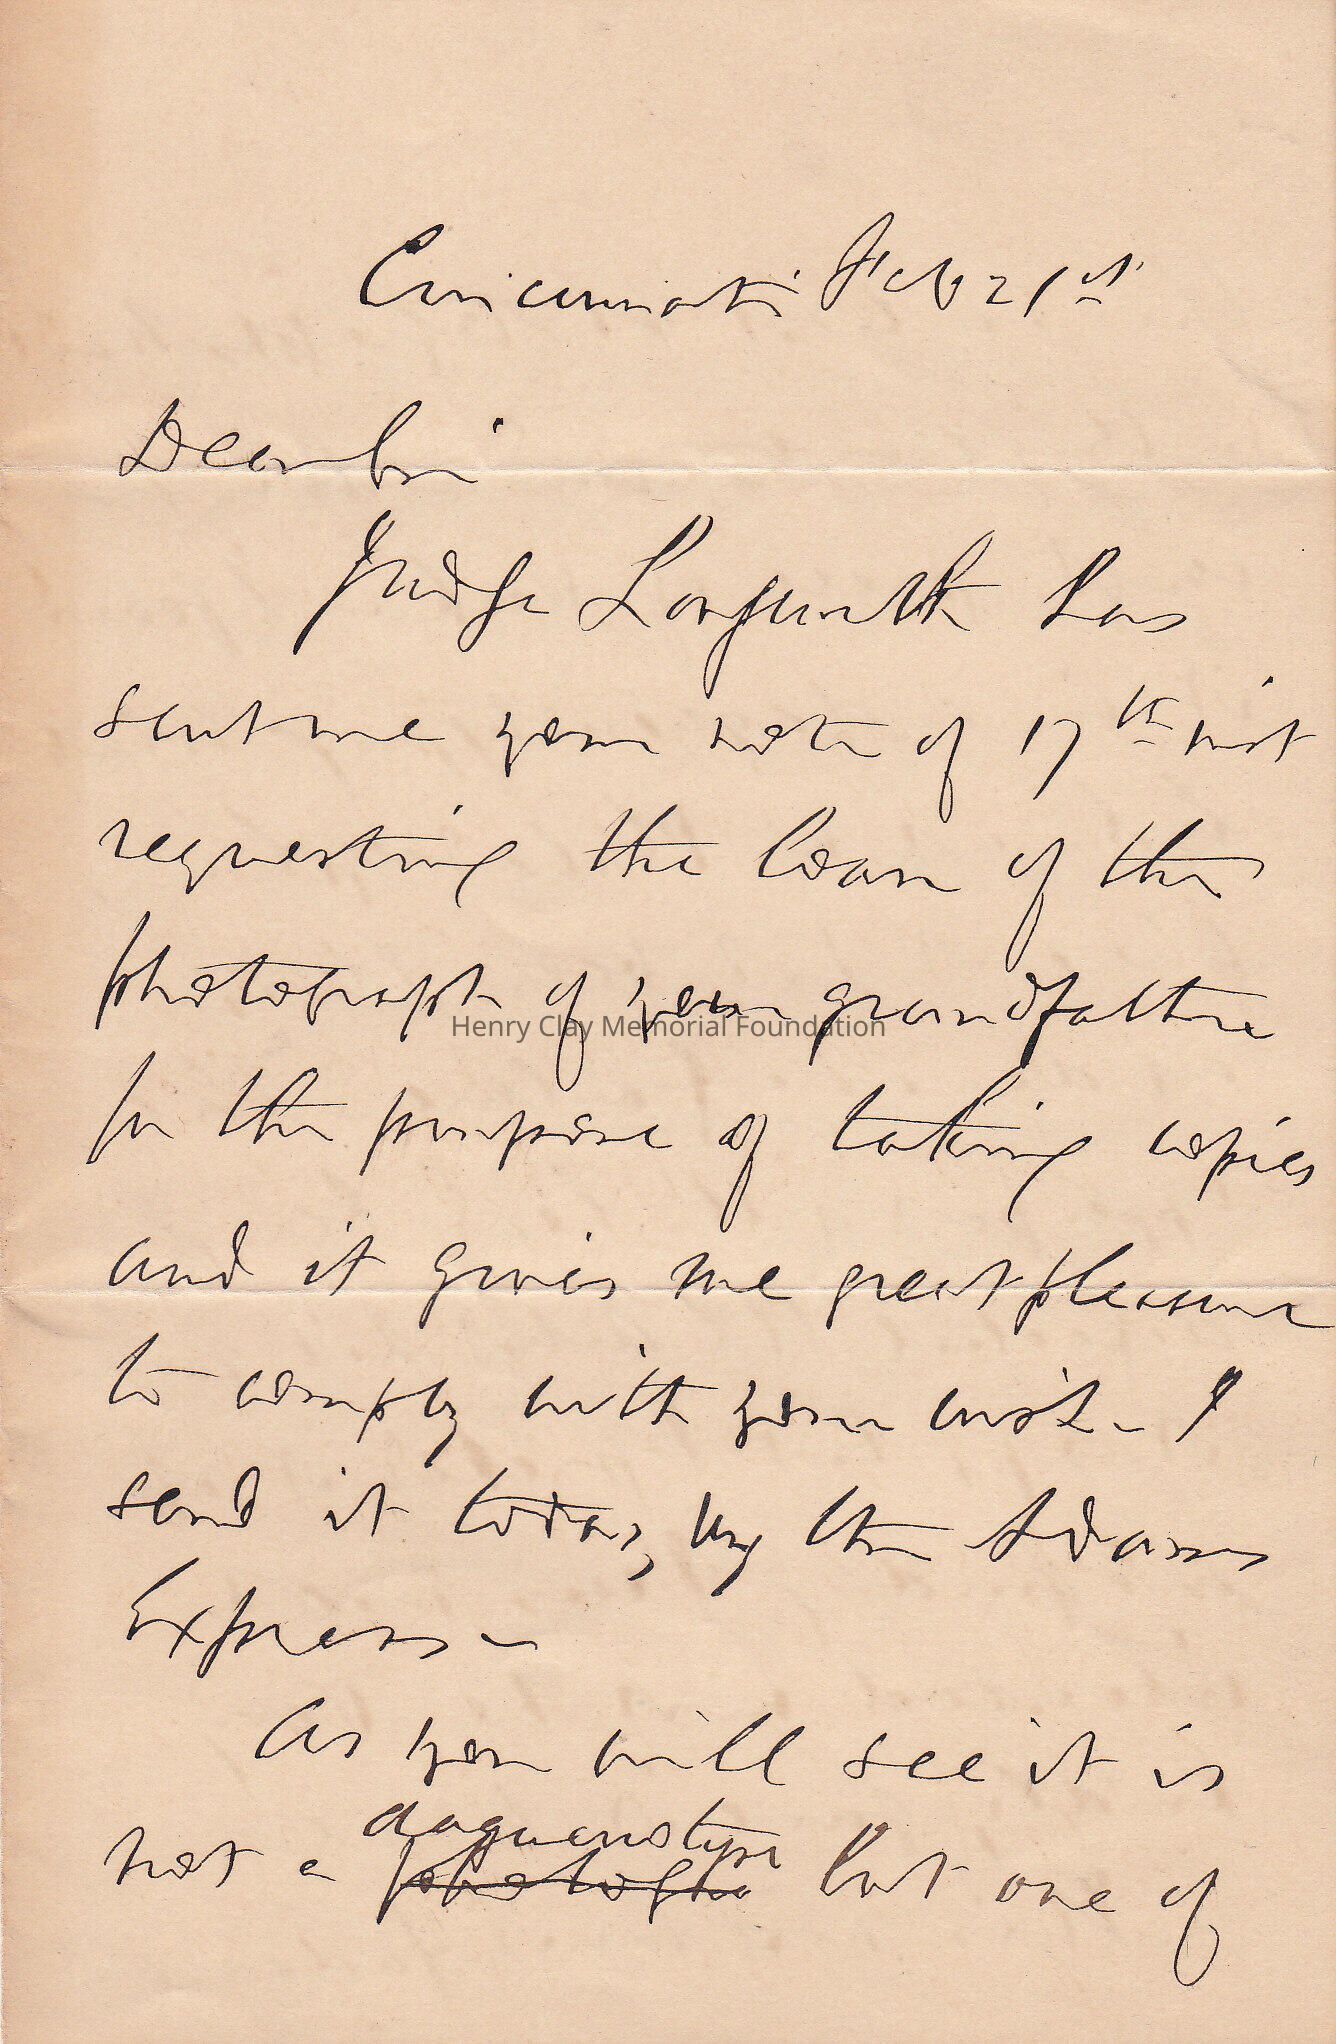 Cincinnati Feb 21st
Dear Sir
Judge Longworth has
sent me your note of 17th inst
requesting the loan of the
photograph of your grandfather
Henry Clay Memorial Foundation
for the purpose of taking copies
and it gives me great pleasure
to comply with your wish - I
send it today, by the Adams
Express -
As you will see it is
daguerrotype
not a photogra but one of